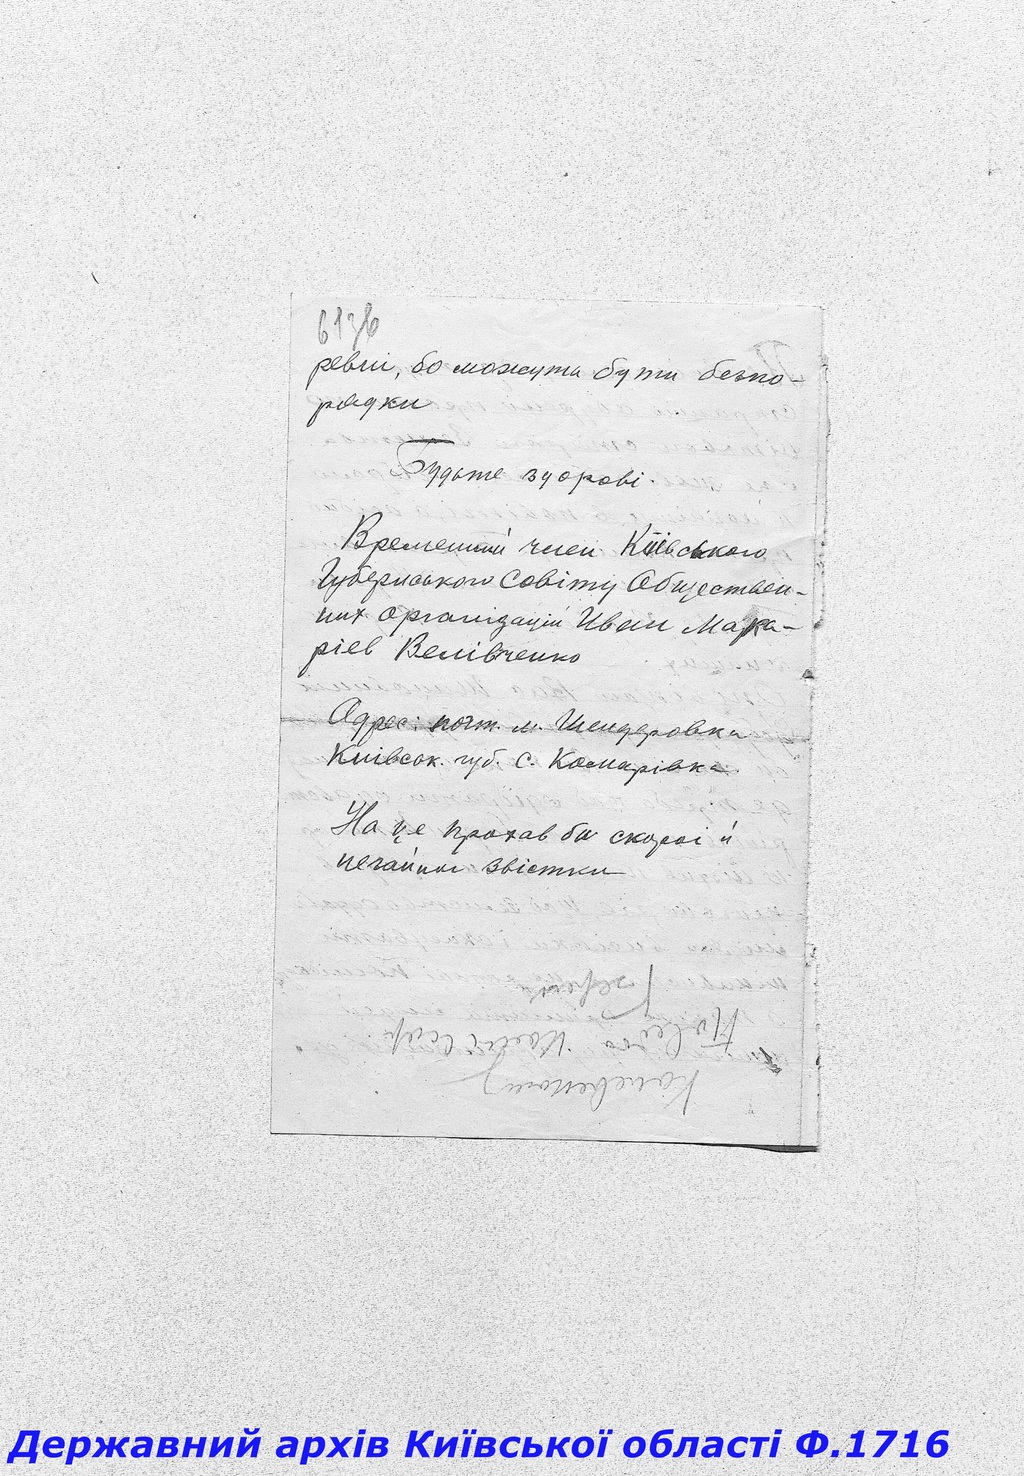 613б
ревні, бо можуть бути безпо-
рядки
Будьте здорові.
Временний член Київського
Губернського Совіту Обществен-
них організацій Иван Мака-
ріев Велівченко
Адрес: почт. м. Шендеровка
Київськ. губ. с. Комарівка.
На це прохав би скорої й
печайної звістки
Державний архів Київської області Ф.1716